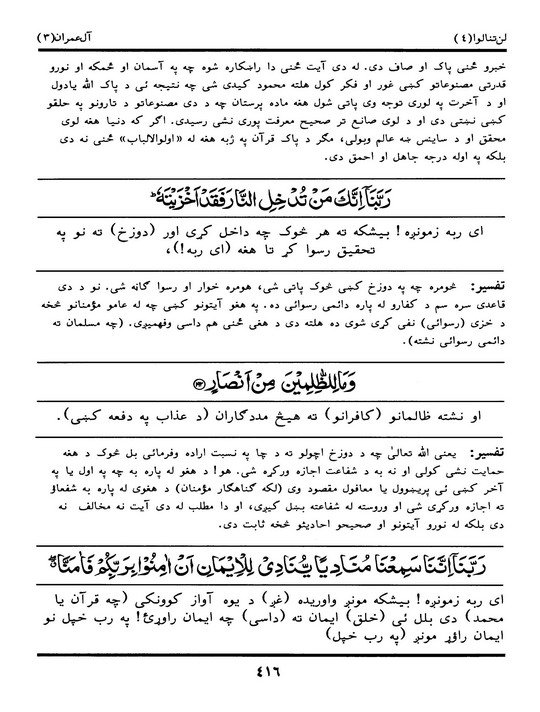 لن تنالوا(٤) آل عمران(٣)
خبرو څخنی پاک او صاف دی. له دی آیت څخنی دا راښکاره شوه چه په آسمان او ځمکه او نورو
قدرتی مصنوعاتو کښی غور او فکر کول هلته محمود کیدی شی چه نتیجه ئی د پاک الله یادول
او د آخرت په لوری توجه وی پاتی شول هغه ماده پرستان چه د دی مصنوعاتو د تارونو په حلقو
کښی نښتی دی او د لوی صانع تر صحیح معرفت پوری نشی رسیدی. اگر که دنیا هغه لوی
محقق او د ساینس ښه عالم وبولی، مگر د پاک قرآن په ژبه هغه له «اولوالالباب» څخنی نه دی
بلکه په اوله درجه جاهل او احمق دی.
رَبَّنَآ اِنَّكَ مَنْ تُدْخِلِ النَّارَ فَقَدْ اَخْزَيْتَهٗ ؕ
ای ربه زمونږه! بیشکه ته هر څوک چه داخل کړی اور (دوزخ) ته نو په
تحقیق رسوا کړ تا هغه (ای ربه!)،
تفسیر: څومره چه په دوزخ کښی څوک پاتی شی، هومره خوار او رسوا ګڼه شی. نو د دی
قاعدی سره سم د کفارو له پاره دائمی رسوائی ده. په هغو آیتونو کښی چه له عامو مؤمنانو څخه
د خزی (رسوائی) نفی کړی شوی ده هلته دی د هغی څخنی هم داسی وفهمیږی. (چه مسلمان ته
دائمی رسوائی نشته).
وَمَا لِلظّٰلِمِيْنَ مِنْ اَنْصَارٍ ﴿١٩٢﴾
او نشته ظالمانو (کافرانو) ته هیڅ مددگاران (د عذاب په دفعه کښی).
تفسیر: یعنی الله تعالیٰ چه د دوزخ اچولو ته د چا په نسبت اراده وفرمائی بل څوک د هغه
حمایت نشی کولی او نه به د شفاعت اجازه ورکړه شی. هو! د هغو له پاره به چه په اول یا په
آخر کښی ئی پریښوول یا معافول مقصود وی (لکه گناهگار مؤمنان) د هغوی له پاره به شفعاؤ
ته اجازه ورکړی شی او وروسته له شفاعته بښل کیږی، او دا مطلب له دی آیت نه مخالف نه
دی بلکه له نورو آیتونو او صحیحو احادیثو څخه ثابت دی.
رَبَّنَآ اِنَّنَا سَمِعْنَا مُنَادِيًا يُّنَادِيْ لِلْاِيْمَانِ اَنْ اٰمِنُوْا بِرَبِّكُمْ فَاٰمَنَّا ۖۗ
ای ربه زمونږه! بیشکه مونږ واوریده (غږ) د یوه آواز کوونکی (چه قرآن یا
محمد) دی بلل ئی (خلق) ایمان ته (داسی) چه ایمان راوړئ! په رب خپل نو
ایمان راوړ مونږ (په رب خپل)
٤١٦